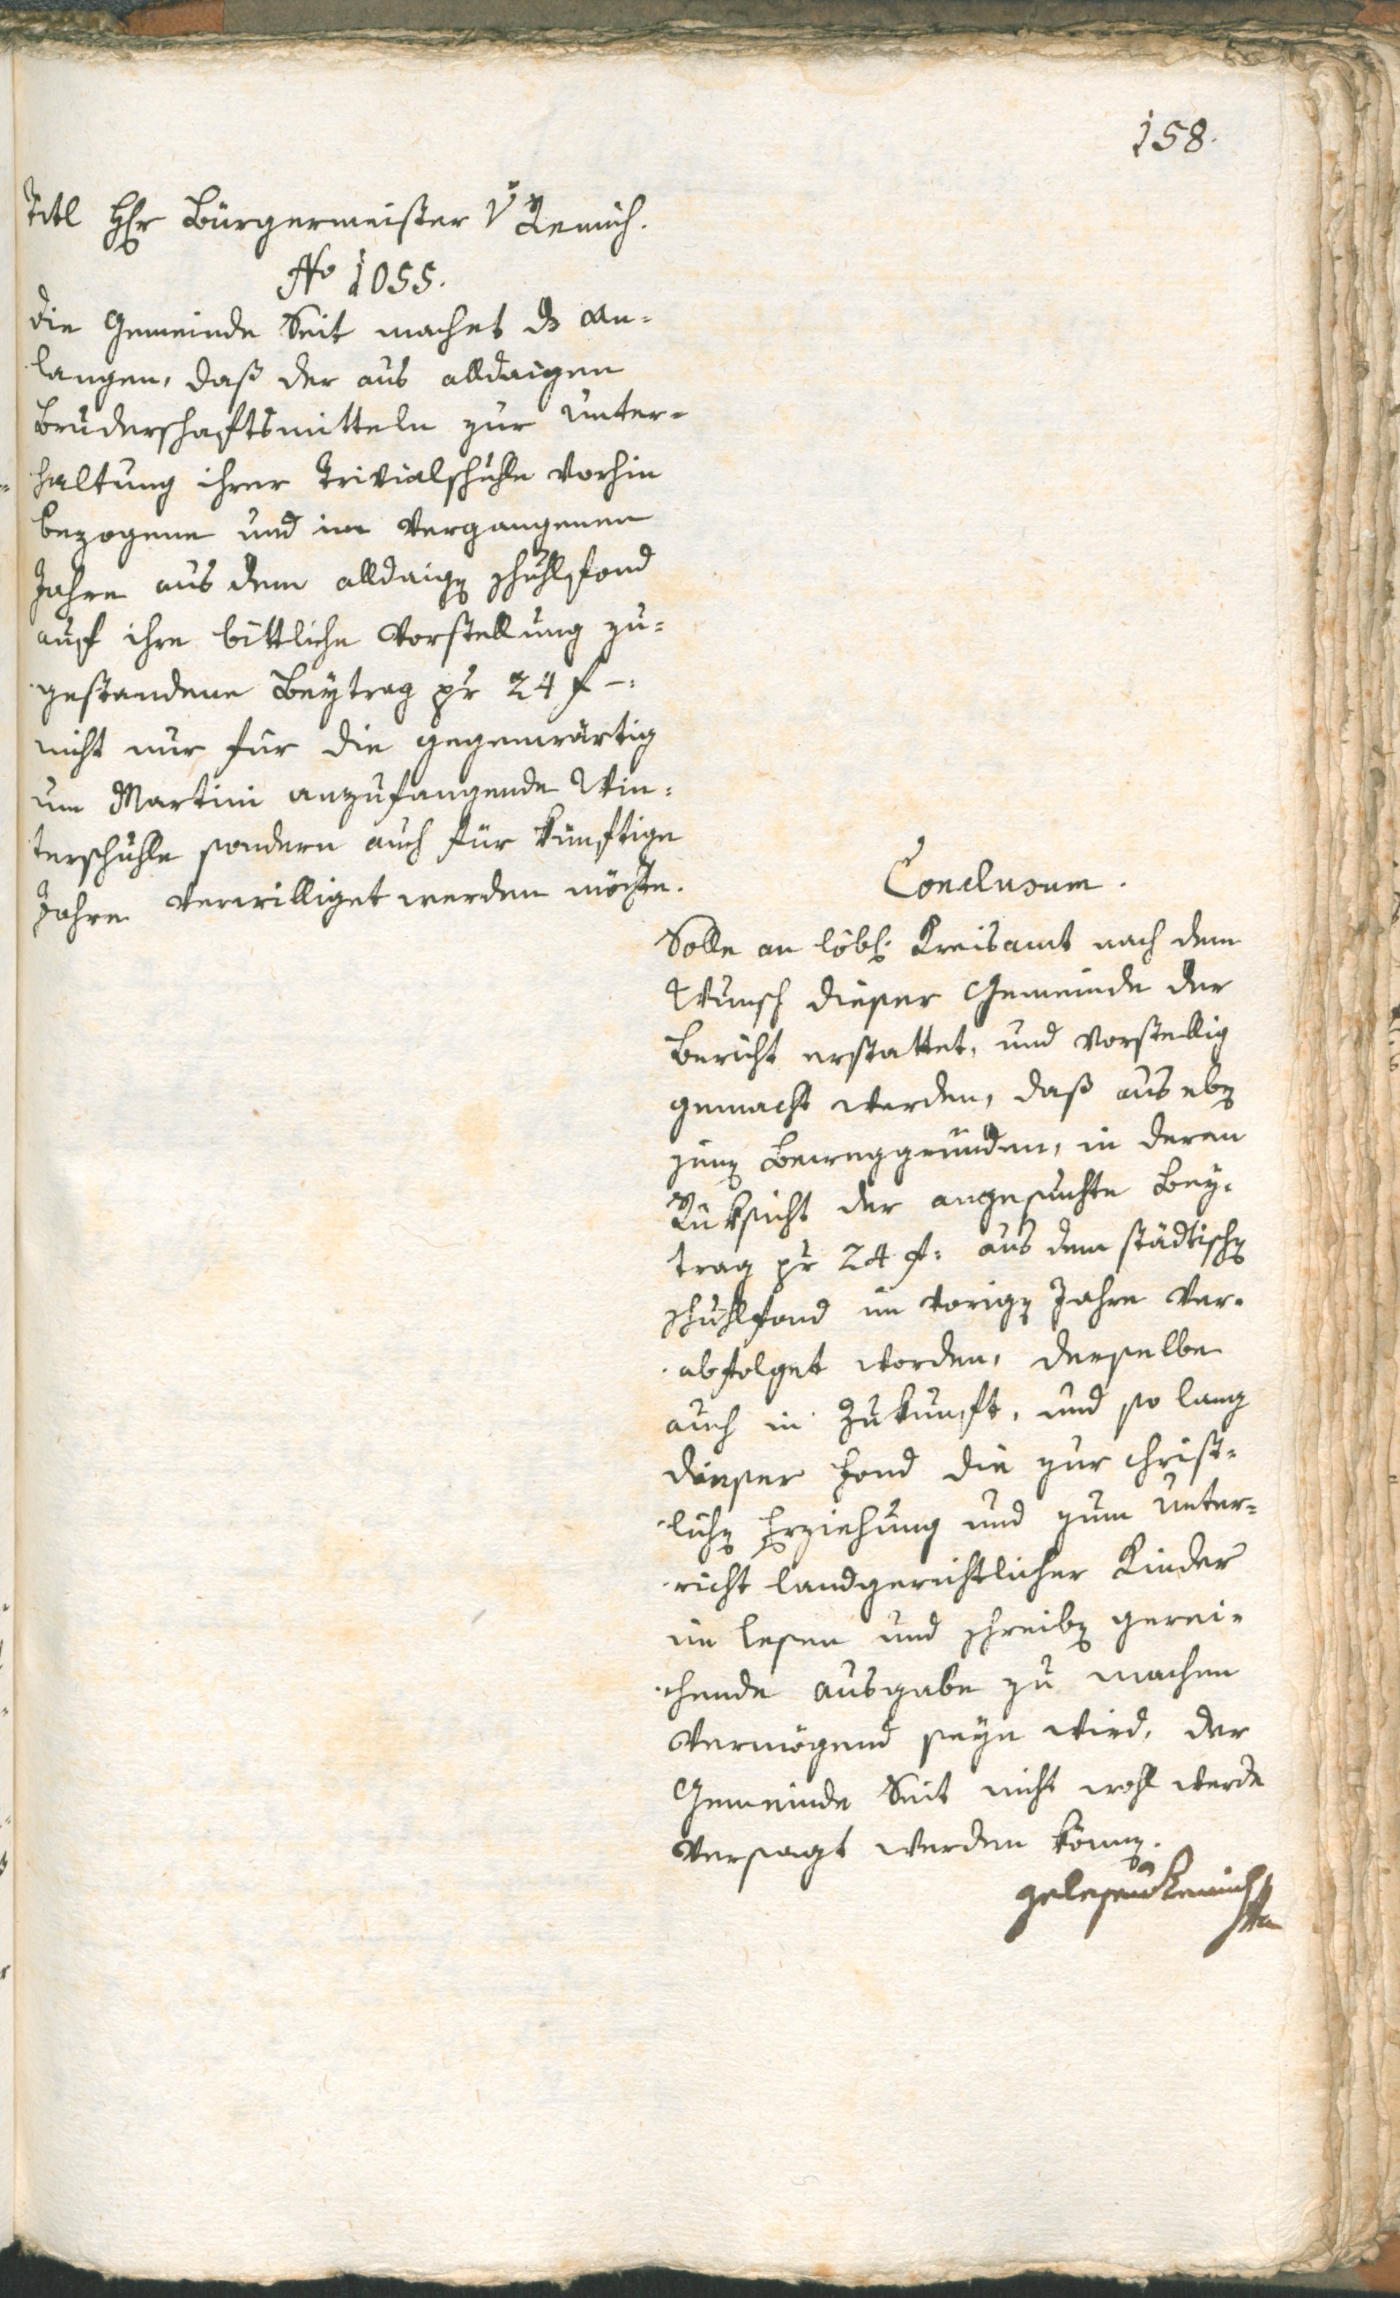 158.
Titl Hr Bürgermeister v Remich.
No 1055.
die Gemeinde Seit machet ds An-
langen, daß der aus alldaigen
Bruderschaftsmitteln zur Unter-
haltung ihrer Trivialschuhle vorhin
bezogene und im vergangenen
Jahre aus dem alldaigen Schuhlfond
auf ihre bittliche Vorstellung zu-
gestandene Beytrag pr 24 f –:
nicht nur für die gegenwärtig
um Martini anzufangende Win-
terschuhle sondern auch für künftige
Jahre verwilliget werden möchte.
Conclusum.
Solle an löbl. Kreisamt nach dem
Wunsch dieser Gemeinde der
Bericht erstattet, und vorstellig
gemacht werden, daß aus eben
jenen Beweggründen, in deren
Rüksicht der angesuchte Bey-
trag pr 24 f: aus dem städtischen
Schuhlfond im vorigen Jahre ver-
abfolget worden, derselbe
auch in Zukunft, und so lang
dieser Fond die zur christ-
lichen Erziehung und zum Unter-
richt landgerichtlicher Kinder
im lesen und schreiben gerei-
chende Ausgabe zu machen
vermögend seyn wird, der
Gemeinde Seit nicht wohl werde
versagt werden können.
gelesen Remich